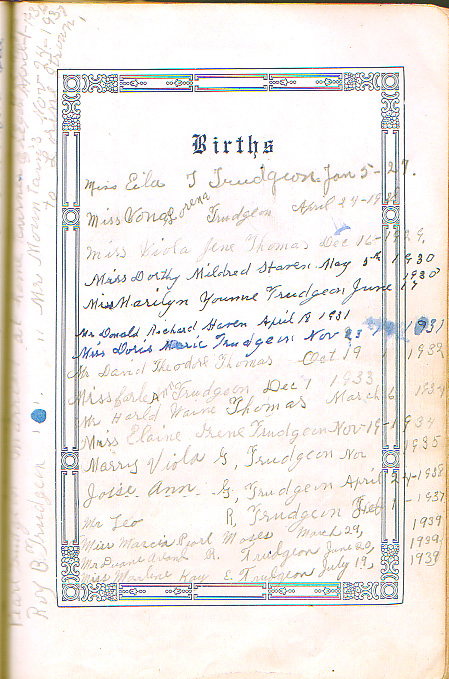 Births
Miss Eila I Trudgeon. Jan 5-27.
Miss Vona Lorena Trudgeon April 24-1928
Miss Viola Jene Thomas Dec 16-1929.
Miss Dorthy Mildred Staven May 5th 1930
Miss Marilyn Younne Trudgeon June 17 1930
Mr Donald Richard Staven April 18 1931
Miss Doris Marie Trudgeon Nov 23 1931
Mr David Theodore Thomas Oct 19 1932
Miss Trudgeon Dec 1 1933
Mr Harold Waine Thomas March 6 1934
Miss Elaine Irene Trudgeon Nov-19-1934
Marry Viola G, Trudgeon Nov 1935
Joise Ann - G, Trudgeon April 24-1938
Mr Leo R, Trudgeon Feb 1-1937
Miss Marcia Pearl Moses March 29, 1939
Mr Duane R. Trudgeon June 20, 1939
Miss Marlene Kay E. Trudgeon July 19, 1939
Roy B. Trudgeon " " " Mrs Mountain's Nov
to Lorine